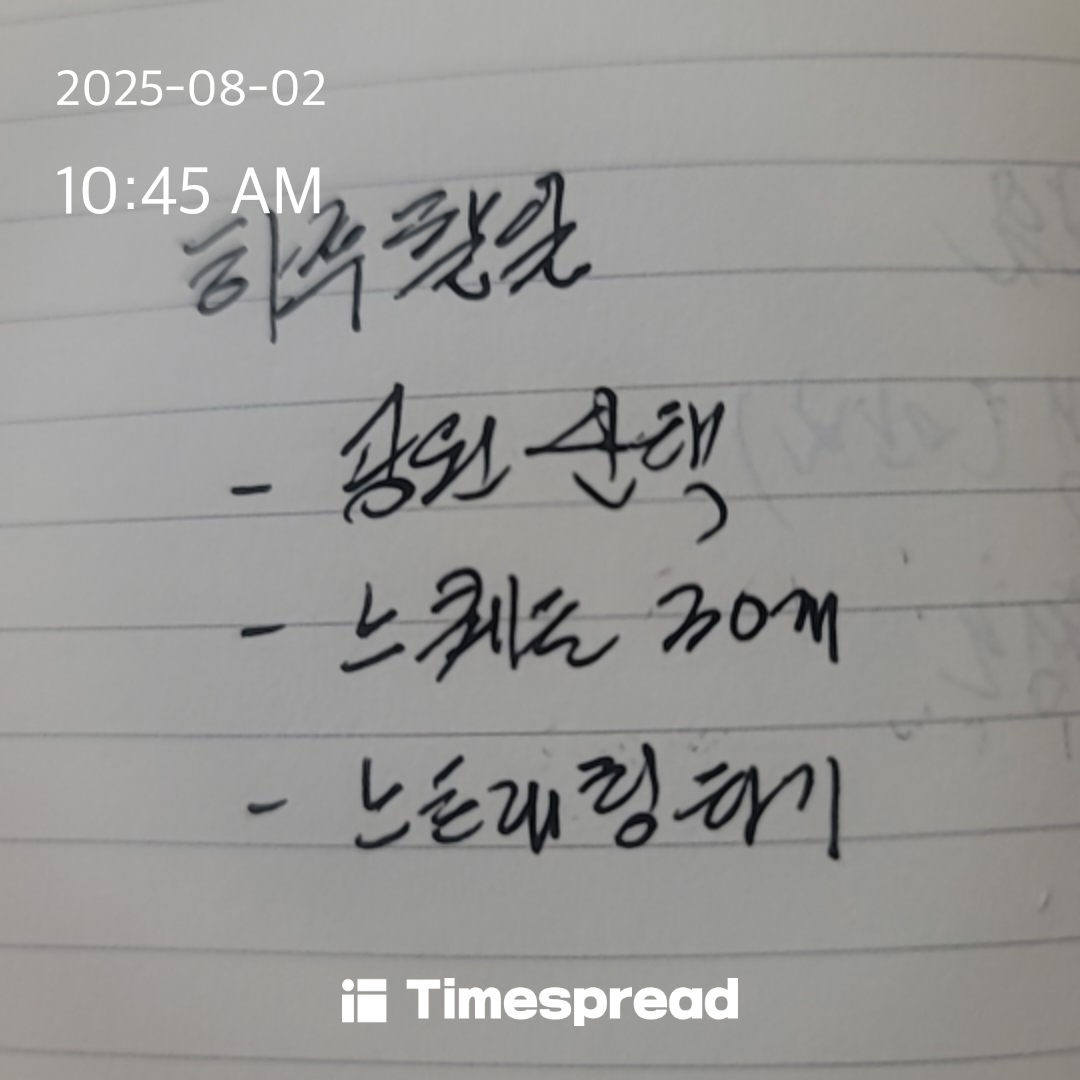 2025-08-02
10:45 AM
하루 할일
- 공원 산택
- 스쿼트 30개
- 스트레칭 하기
Timespread